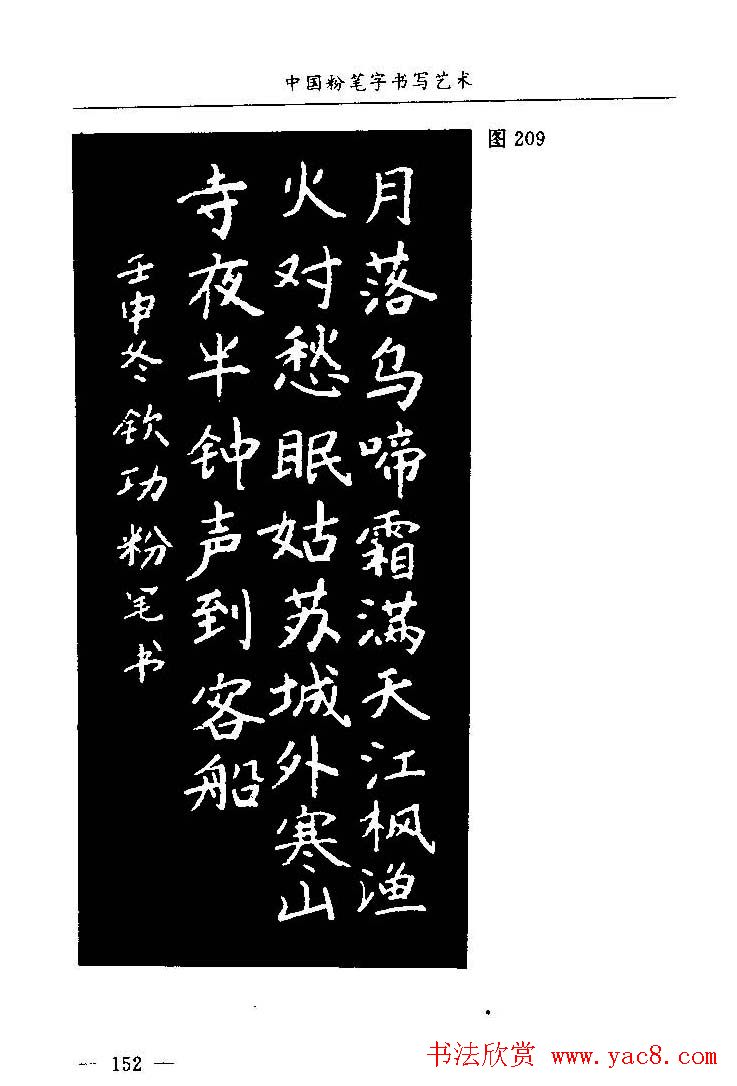 中国粉笔字书写艺术
图 209
月落乌啼霜满天江枫渔
火对愁眠姑苏城外寒山
寺夜半钟声到客船
壬申冬钦功粉笔书
— 152 —
书法欣赏 www.yac8.com